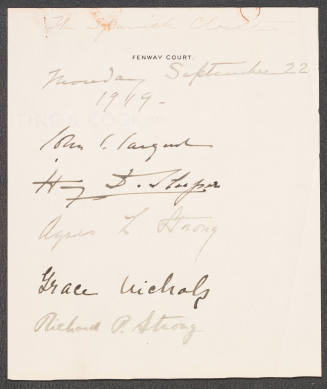 The Spanish Cloister
FENWAY COURT.
Monday September 22
1919.
John S. Sargent
Henry D. Sleeper
Agnes L Strong
Grace Nichols
Richard P. Strong